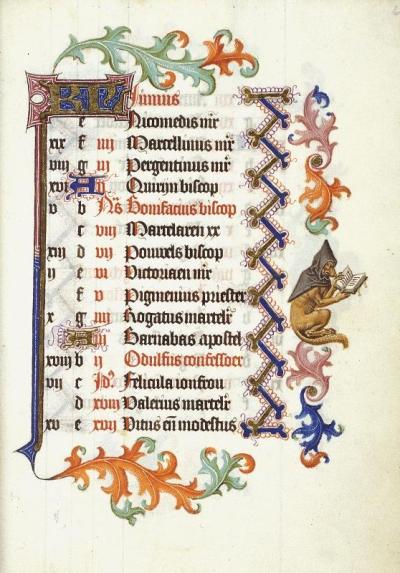 KL Junius
e Nicomedis mr
xix f iiij Marcellinus mr
viij g iij Pergentinus mr
xvi A ij Quirijn biscop
v b Ns Bonifacius biscop
c viij Martelaren xx
xiij d vij Pouwels biscop
ij e vi Victoriaen mr
f v Pigmenius priester
x g iiij Rogatus martelr
A iij Barnabas apostel
xviij b ij Odulfus confessoer
vij c Jdus Felicula ioncfrou
d xviij Valerius martelr
xv e xvij Vitus en modestus